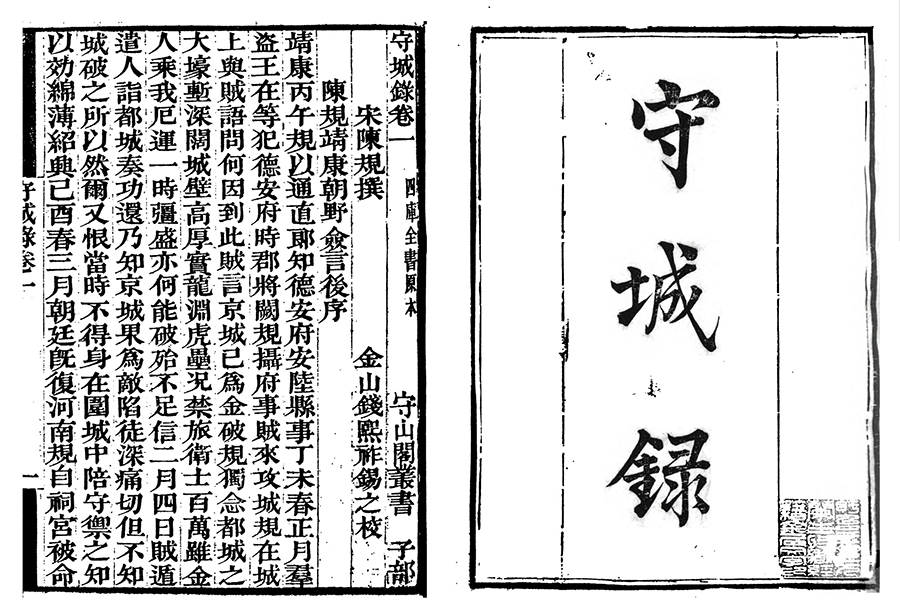 守城録
守城錄卷一
四庫全書原本
守山閣叢書 子部
宋陳規撰
金山錢熙祚錫之校
陳規靖康朝野僉言後序
靖康丙午規以通直郎知德安府安陸縣事丁未春正月羣
盜王在等犯德安府時郡將闕規攝府事賊來攻城規在城
上與賊語問何因到此賊言京城已爲金破規獨念都城之
大壕塹深闊城壁高厚實龍淵虎壘况禁旅衛士百萬雖金
人乘我厄運一時彊盛亦何能破殆不足信二月四日賊遁
遣人詣都城奏功還乃知京城果爲敵陷徒深痛切但不知
城破之所以然爾又恨當時不得身在圍城中陪守禦之知
以効綿薄紹興己酉春三月朝廷旣復河南規自祠宮被命
守城錄卷一
一